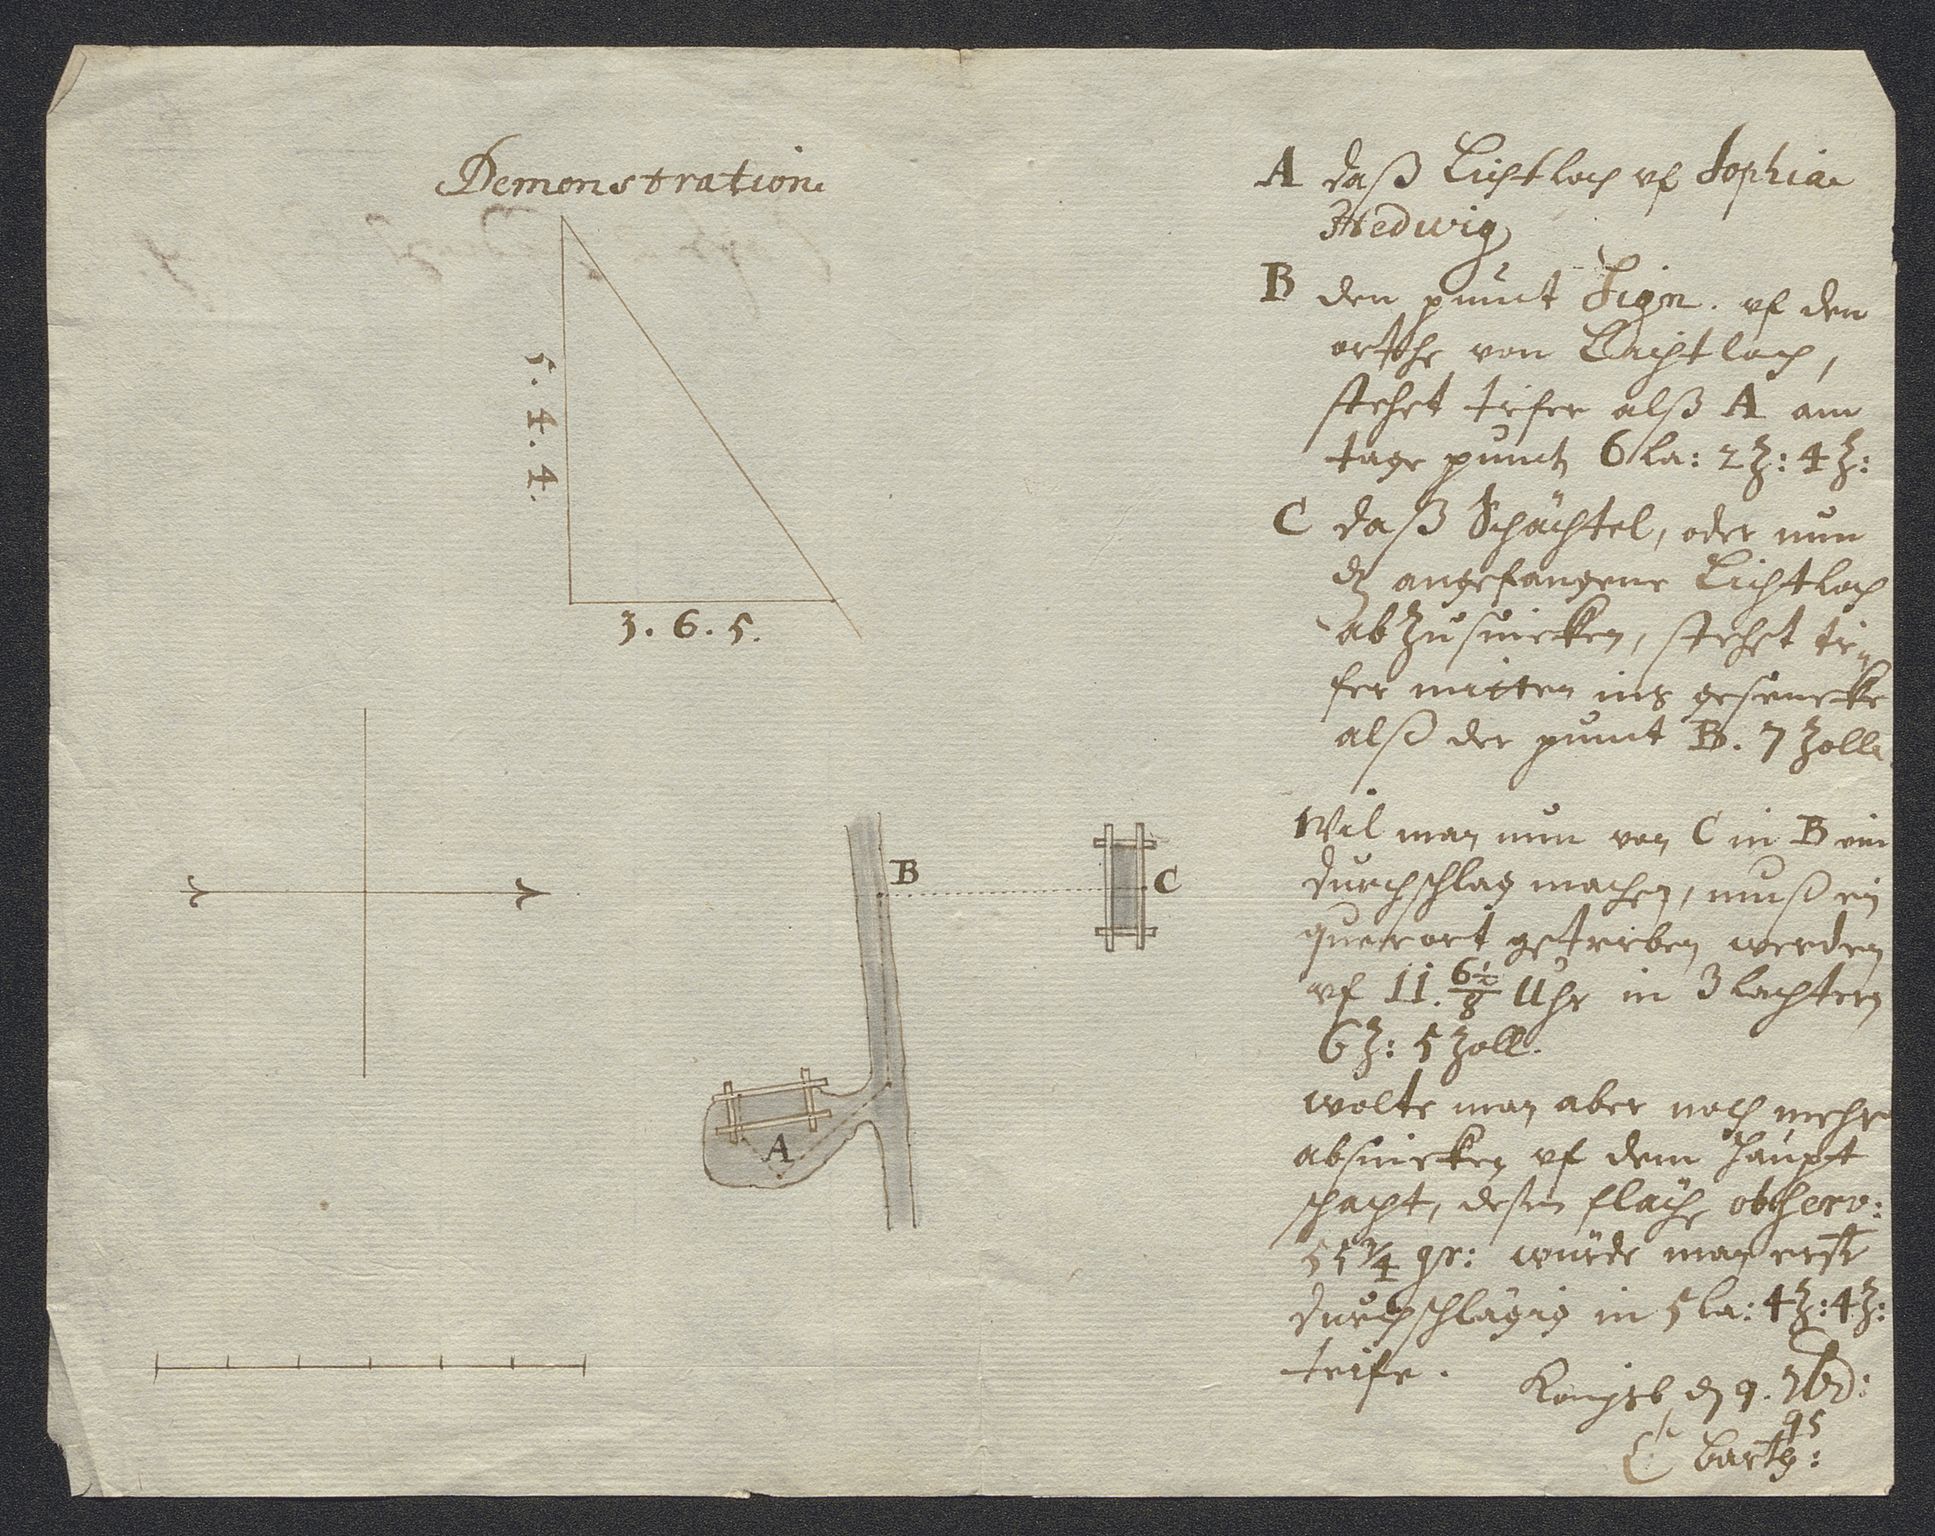 Demonstration
5. 4. 4.
3. 6. 5.
B
C
A
A daß Lichtloch uf Sophia
Hedwig
B den punct Sign. uf den
orthe von Lichtloch,
stehet tiefer alß A am
tage punct 6 la: 2 Z: 4 Z:
C daß Schächtel, oder nun
dz angefangene Lichtloch
abzusincken, stehet tie-
fer mitten ins gesencke
alß der punct B. 7 Zolle
Wil man nun von C in B ein
durchschlag machen, muß ein
querort getrieben werden
uf 11. 6½/8 Uhr in 3 lachtern
6 Z: 5 Zoll.
wolte man aber noch mehr
absincken uf dem haupt
schacht, deßen flache observ:
55 3/4 gr: würde man erst
durchschlägig in 5 la: 4 Z: 4 Z:
teife.
Kongsb d 9. 7br:
95
C barth: